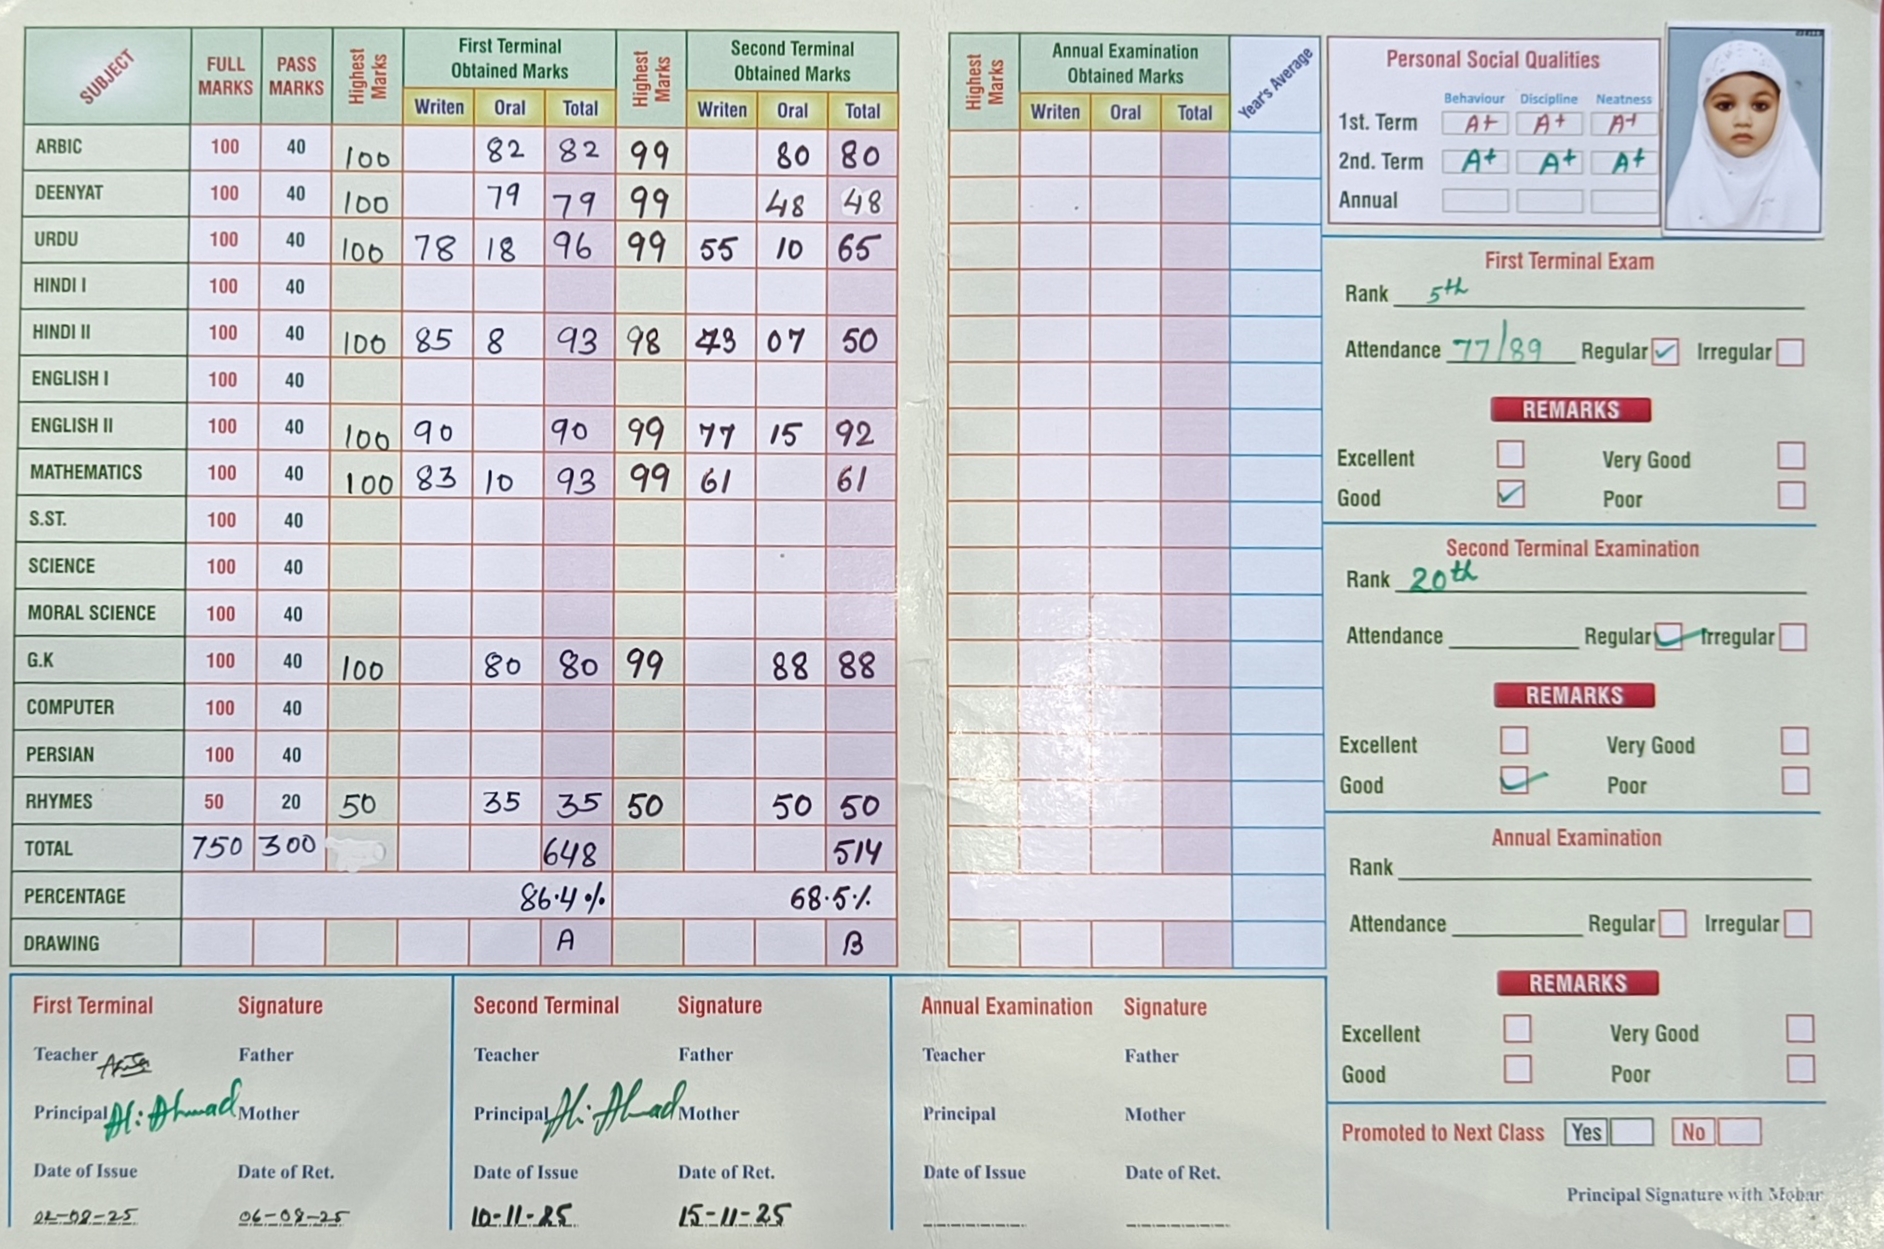 SUBJECT FULL MARKS PASS MARKS Highest Marks First Terminal Obtained Marks Highest Marks Second Terminal Obtained Marks
Writen Oral Total Writen Oral Total
ARBIC 100 40 100 82 82 99 80 80
DEENYAT 100 40 100 79 79 99 48 48
URDU 100 40 100 78 18 96 99 55 10 65
HINDI I 100 40
HINDI II 100 40 100 85 8 93 98 43 07 50
ENGLISH I 100 40
ENGLISH II 100 40 100 90 90 99 77 15 92
MATHEMATICS 100 40 100 83 10 93 99 61 61
S.ST. 100 40
SCIENCE 100 40
MORAL SCIENCE 100 40
G.K 100 40 100 80 80 99 88 88
COMPUTER 100 40
PERSIAN 100 40
RHYMES 50 20 50 35 35 50 50 50
TOTAL 750 300 648 514
PERCENTAGE 86.4% 68.5%
DRAWING A B
Highest Marks Annual Examination Obtained Marks Year's Average
Writen Oral Total
Personal Social Qualities
Behaviour Discipline Neatness
1st. Term A+ A+ A+
2nd. Term A+ A+ A+
Annual
First Terminal Exam
Rank 5th
Attendance 77/89 Regular Irregular
REMARKS
Excellent Very Good
Good Poor
Second Terminal Examination
Rank 20th
Attendance Regular Irregular
REMARKS
Excellent Very Good
Good Poor
Annual Examination
Rank
Attendance Regular Irregular
REMARKS
Excellent Very Good
Good Poor
Promoted to Next Class Yes No
Principal Signature with Mohar
First Terminal Signature
Teacher Father
Principal Ali Ahmad Mother
Date of Issue Date of Ret.
02-08-25 06-08-25
Second Terminal Signature
Teacher Father
Principal Ali Ahmad Mother
Date of Issue Date of Ret.
10-11-25 15-11-25
Annual Examination Signature
Teacher Father
Principal Mother
Date of Issue Date of Ret.